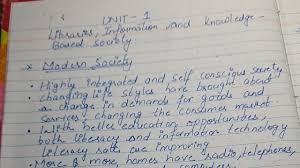 UNIT - 1
Libraries, Information and Knowledge-
Based Society
* Modern Society
• Highly integrated and self conscious society
• Changing life styles have brought about
a change in demands for goods and
services changing the consumer market.
• With better education opportunities,
both literacy and information technology
literacy rate are improving
• More & more, homes have radio, telephones,